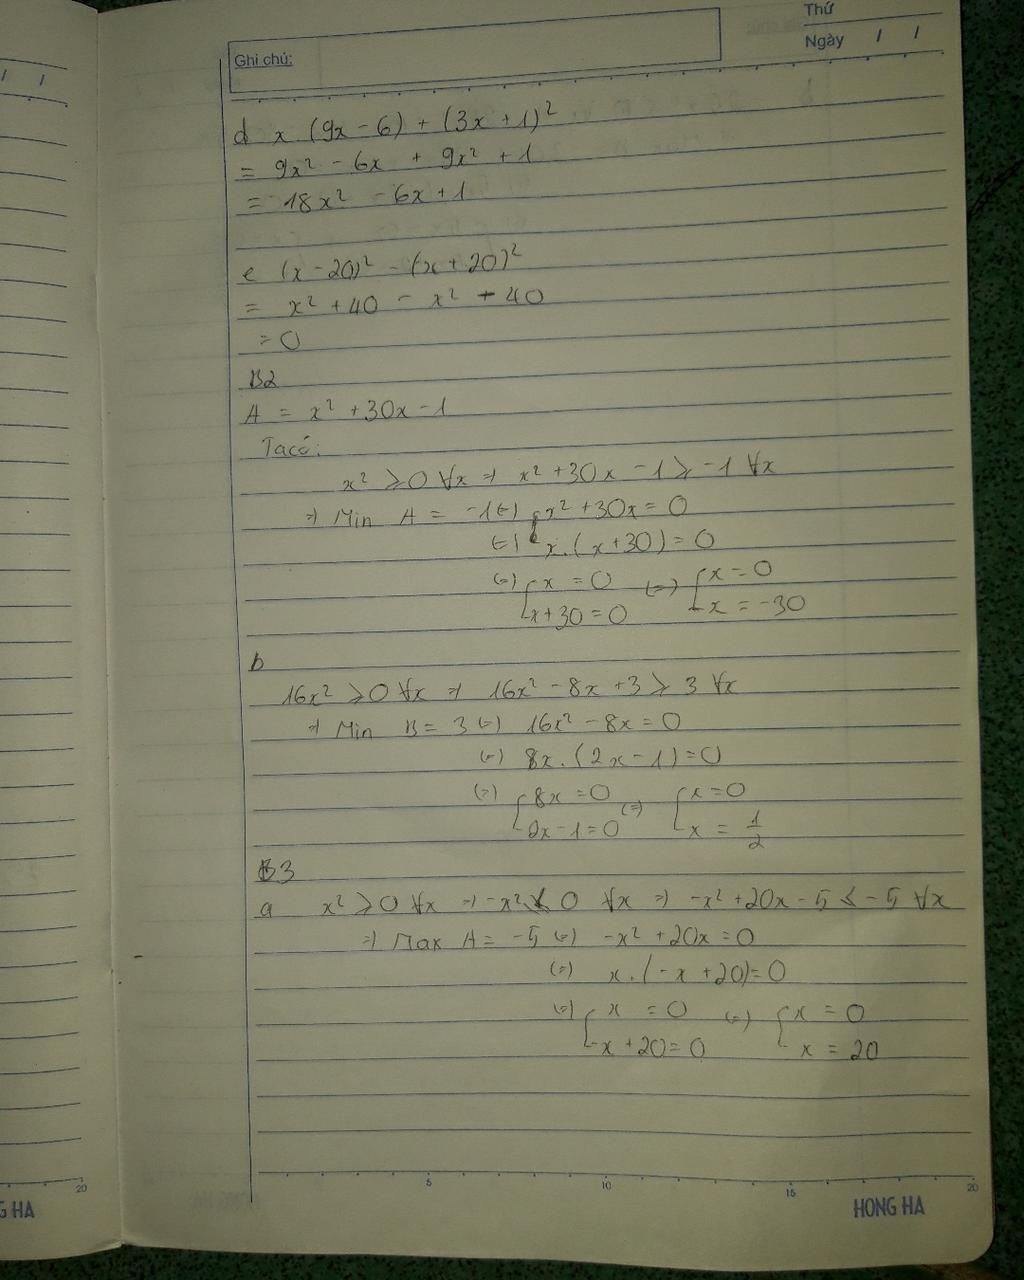 Thứ
Ghi chú:
Ngày / /
d x (9x - 6) + (3x + 1)²
= 9x² - 6x + 9x² + 1
= 18x² - 6x + 1
e (x - 20)² - (x + 20)²
= x² + 40 - x² - 40
= 0
B2
A = x² + 30x - 1
Ta có:
x² ⩾ 0 ∀x => x² + 30x - 1 ⩾ -1 ∀x
=> Min A = -1 (=) x² + 30x = 0
(=) x.(x + 30) = 0
(=) { x = 0 (=) { x = 0
x + 30 = 0 x = -30
b
16x² ⩾ 0 ∀x => 16x² - 8x + 3 ⩾ 3 ∀x
=> Min B = 3 (=) 16x² - 8x = 0
(=) 8x.(2x - 1) = 0
(=) { 8x = 0 (=) { x = 0
2x - 1 = 0 x = 1/2
B3
a x² ⩾ 0 ∀x => -x² ⩽ 0 ∀x => -x² + 20x - 5 ⩽ -5 ∀x
=> Max A = -5 (=) -x² + 20x = 0
(=) x.(-x + 20) = 0
(=) { x = 0 (=) { x = 0
-x + 20 = 0 x = 20
5 10 15 20
HONG HA
20
G HA